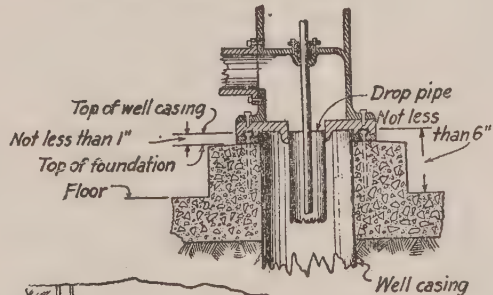 Top of well casing
Not less than 1"
Top of foundation
Floor
Drop pipe
Not less
than 6"
Well casing